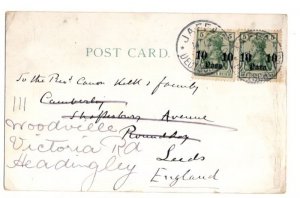 JAFFA
10 10
Para
10 10
Para
POST CARD.
To the Revd Canon Keith & family
111 Camberley
Shaftesbury Avenue
Woodville Roundhay
Victoria Rd Leeds
Headingley England